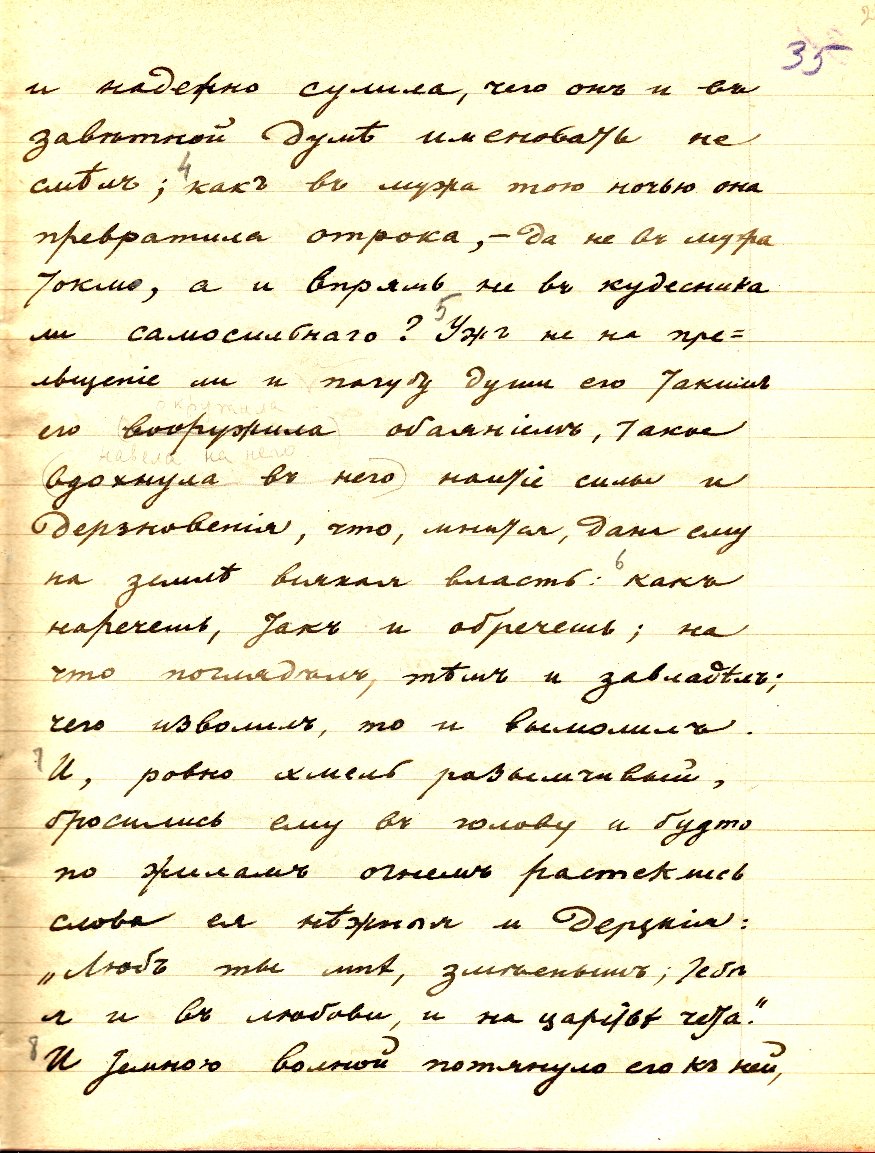 35
и надежно сулила, чего онъ и въ
завѣтной думѣ именовать не
смѣлъ; 4 какъ въ мужа тою ночью она
превратила отрока, – да не въ мужа
токмо, а и впрямь не въ кудесника
ли самосильнаго? 5 Ужъ не на пре=
льщеніе ли и пагубу души его такимъ
окружила
его (вооружила) обаяніемъ, такое
навела на него
(вдохнула въ него) наитіе силы и
дерзновенія, что, мнится, дана ему
на землѣ всякая власть: 6 какъ
наречешь, такъ и обречешь; на
что поглядѣлъ, тѣмъ и завладѣлъ;
чего изволилъ, то и вымолилъ.
7 И, ровно хмель разымчивый,
бросились ему въ голову и будто
по жиламъ огнемъ растеклись
слова ея нѣжныя и дерзкія:
„Любъ ты мнѣ, змѣенышъ; тебѣ
я и въ любови, и на царствѣ чета."
8 И темною волной потянуло его къ ней,